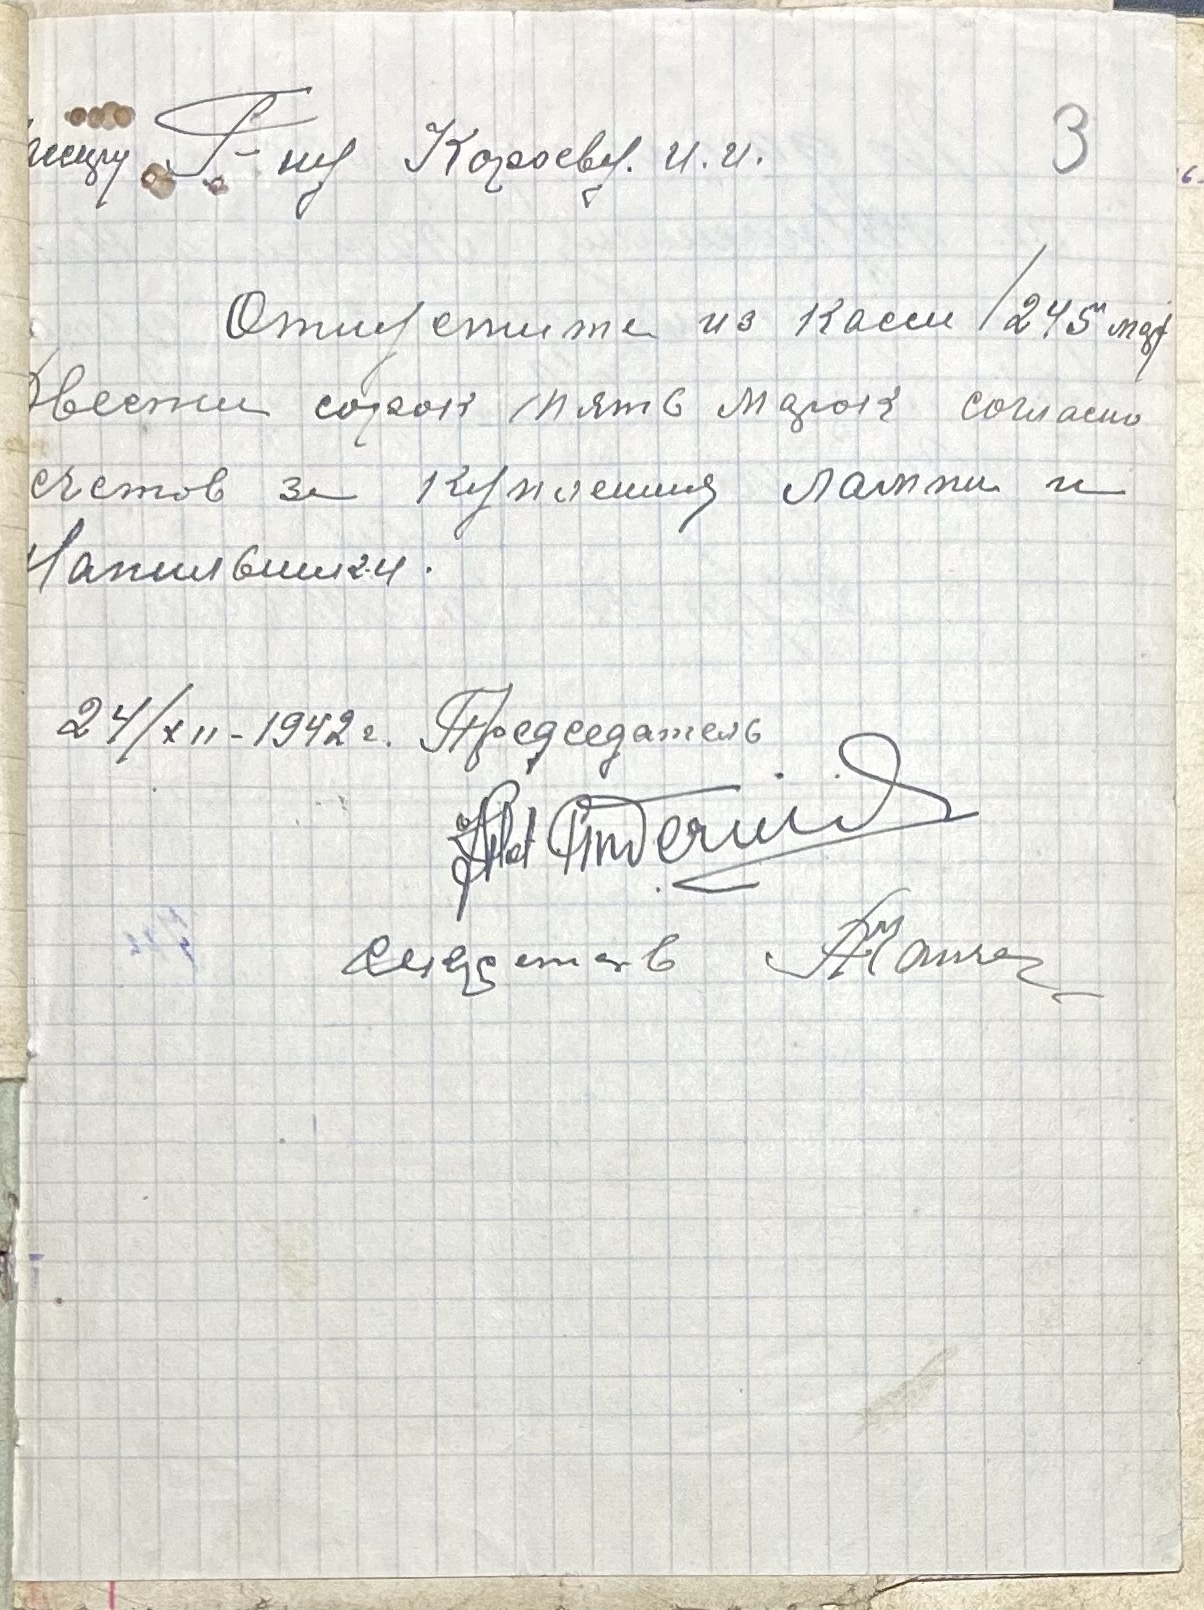 Г-ну Королеву. И. И. 3
Отпустите из касси /245 м мар/
Двести сорок пять марок согласно
счетов за купления лампи и
Напильвики.
24/XII-1942 г. Председатель
Секретарь